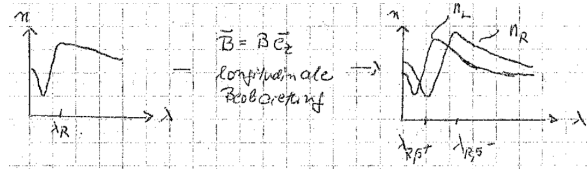 n
λ
λ_R
B⃗ = B e⃗_z
longitudinale
Beobachtung
n
n_L
n_R
λ
λ_R,σ⁺
λ_R,σ⁻